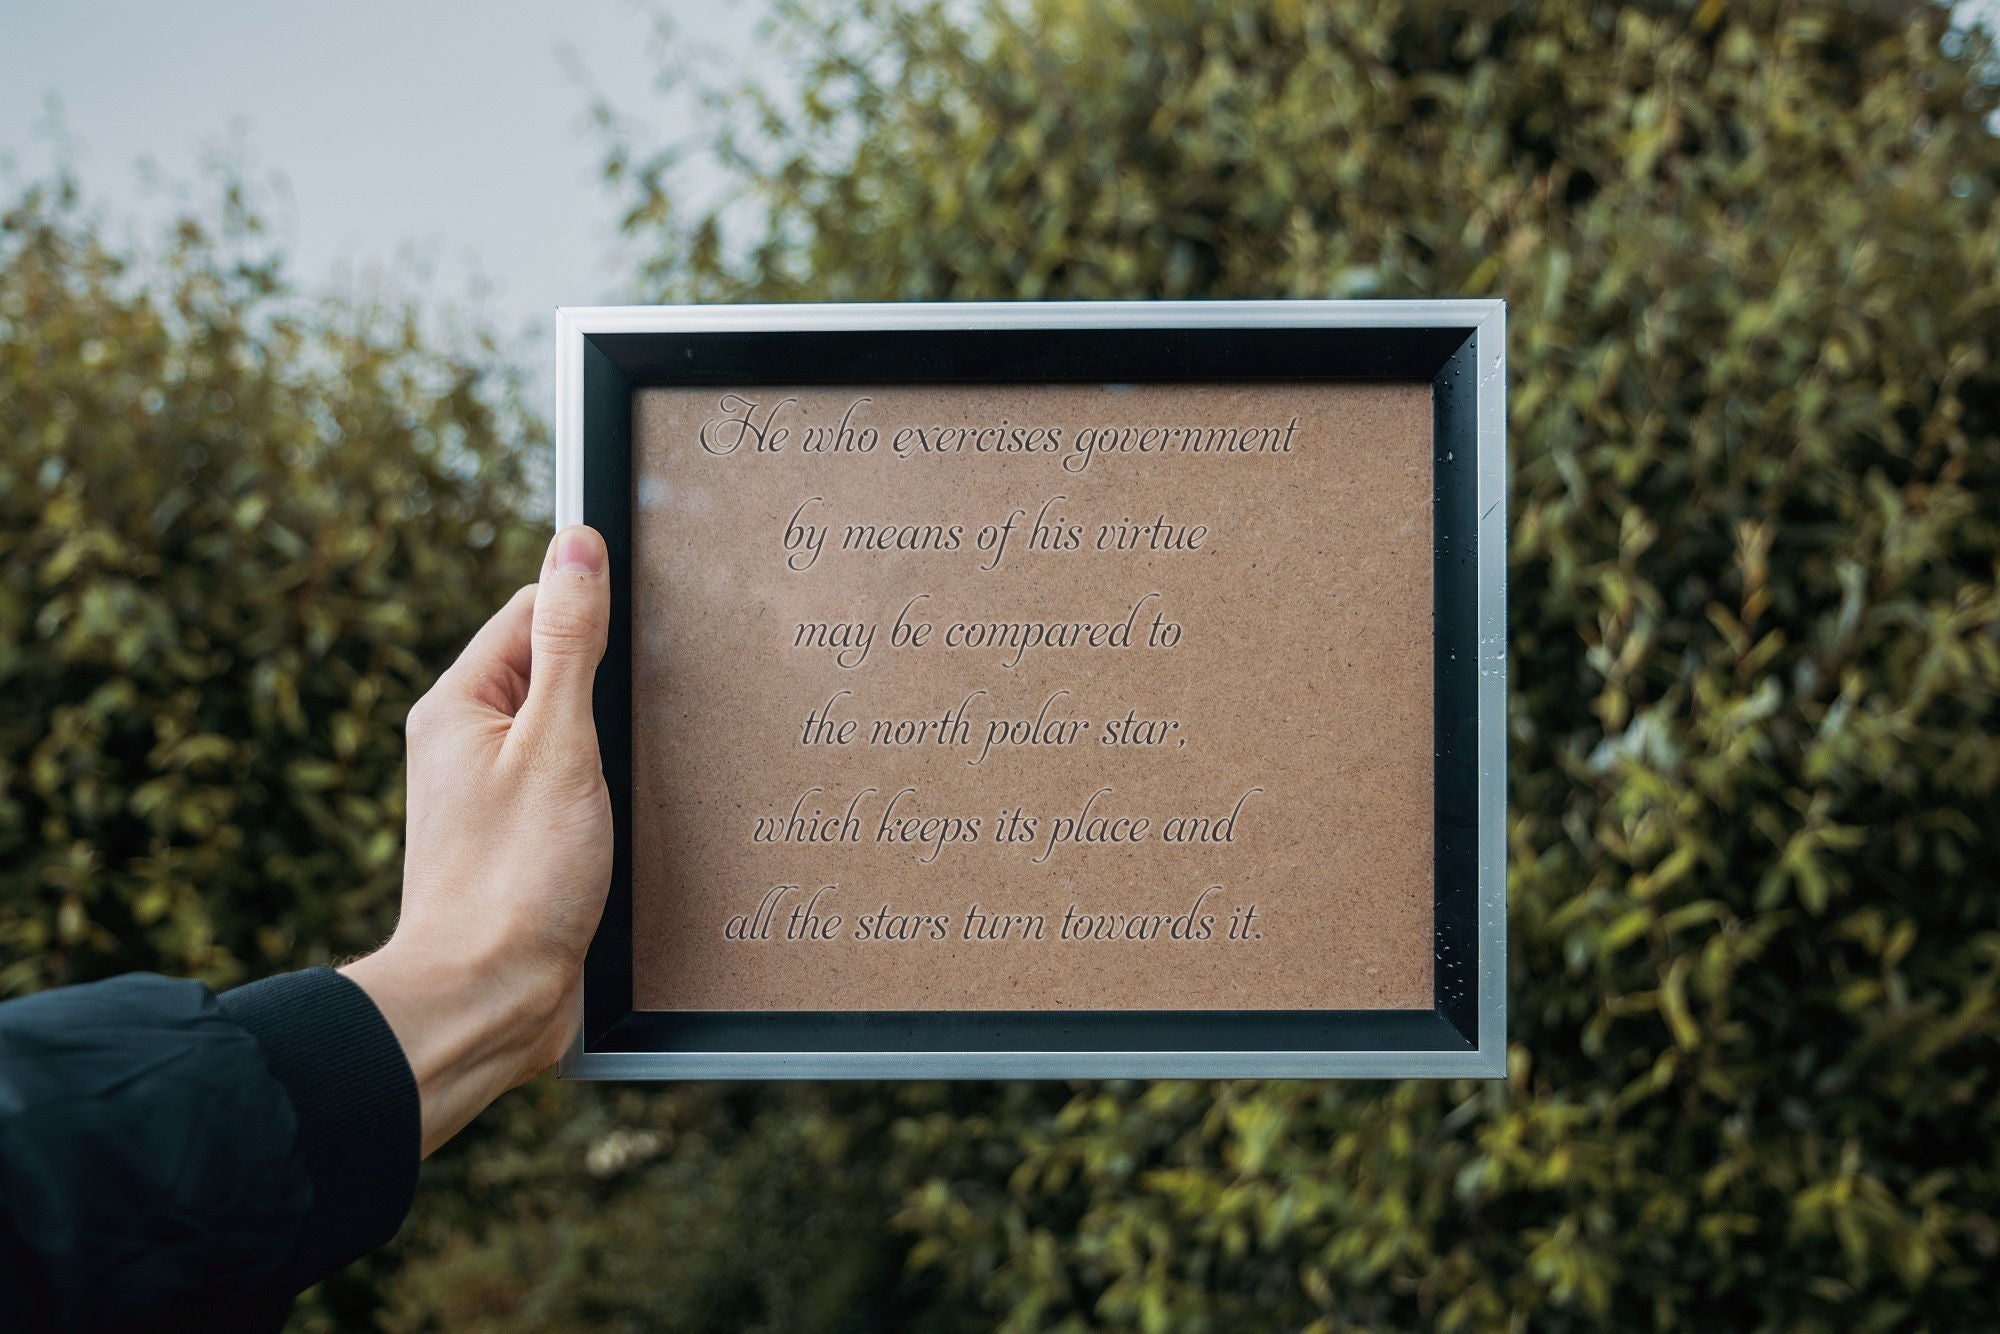 He who exercises government
by means of his virtue
may be compared to
the north polar star,
which keeps its place and
all the stars turn towards it.